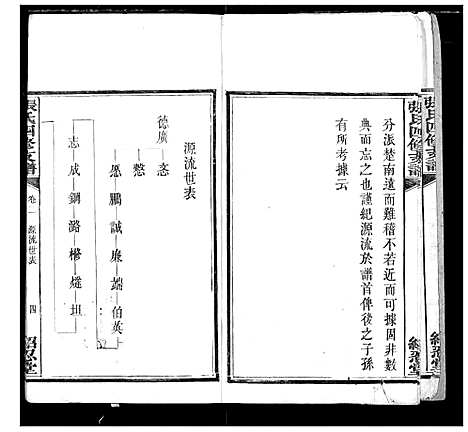 張氏四修支譜
分派楚南遠而難稽不若近而可據固非數
典而忘之也謹紀源流於譜首俾後之子孫
有所考據云
源流世表
德廣
憨
愿 鵬 誠 廉 端 伯英
志 成 鋼 潞 坦
張氏四修支譜
卷一 源流世表 四